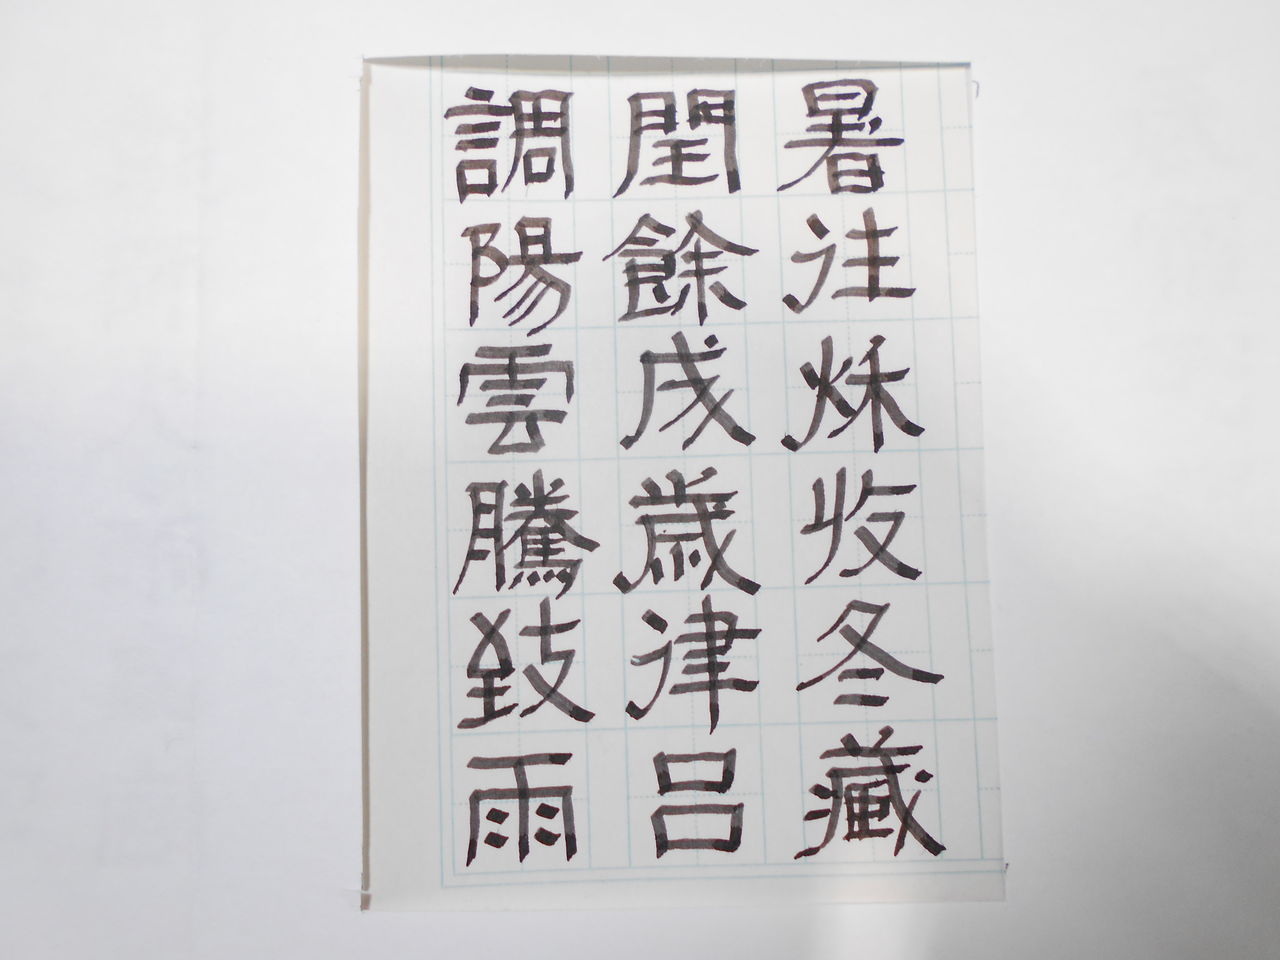 暑往秌收冬藏
閏餘成歲律呂
調陽雲騰致雨